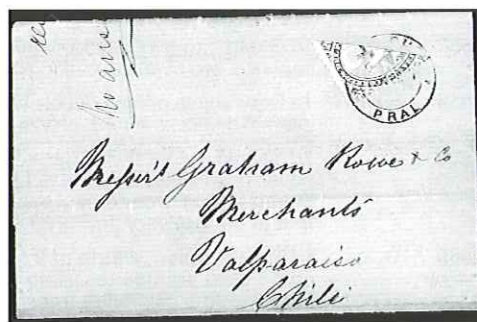 PRAL
Messrs Graham Rowe & Co
Merchants
Valparaiso
Chili